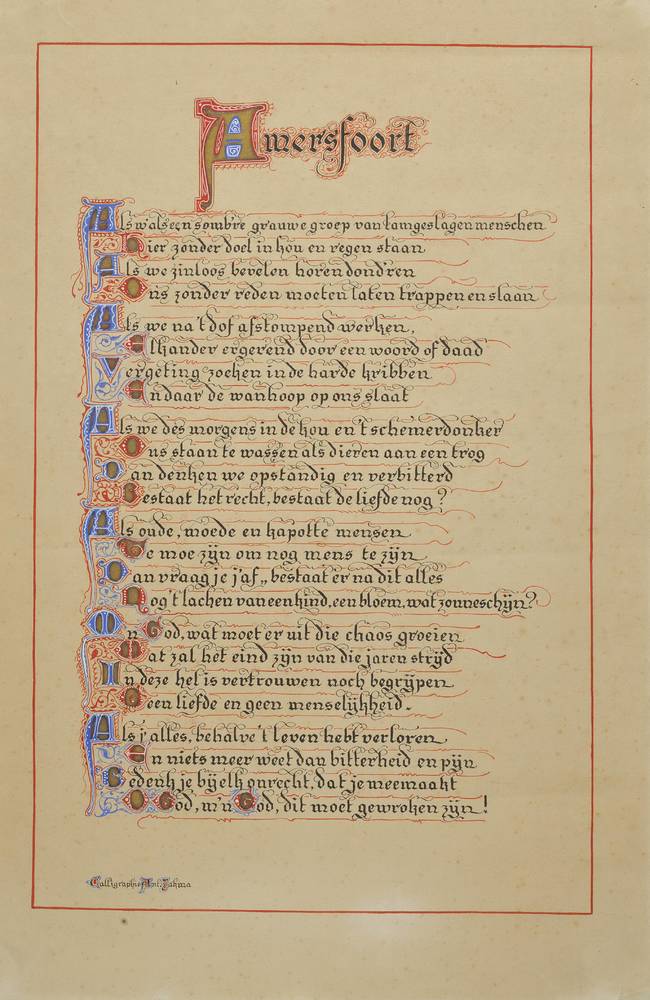 Amersfoort
Als w'als een sombre grauwe groep van lamgeslagen menschen
Hier zonder doel in kou en regen staan
Als we zinloos bevelen horen dond'ren
Ons zonder reden moeten laten trappen en slaan
Als we na 't dof afstompend werken,
Elkander ergerend door een woord of daad
Vergeting zoeken in de harde kribben
En daar de wanhoop op ons slaat
Als we des morgens in de kou en 't schemerdonker
Ons staan te wassen als dieren aan een trog
Dan denken we opstandig en verbitterd
Bestaat het recht, bestaat de liefde nog?
Als oude, moede en kapotte mensen
Te moe zijn om nog mens te zijn
Dan vraag je j'af „ bestaat er na dit alles
Nog 't lachen van een kind, een bloem, wat zonneschijn?
O m'n God, wat moet er uit die chaos groeien
Wat zal het eind zijn van die jaren strijd
In deze hel is vertrouwen noch begrijpen
Geen liefde en geen menselijkheid.
Als j'alles, behalve 't leven hebt verloren
En niets meer weet dan bitterheid en pijn
Bedenk je bij elk onrecht, dat je meemaakt
O God, m'n God, dit moet gewroken zijn!
Calligraphie Ant.